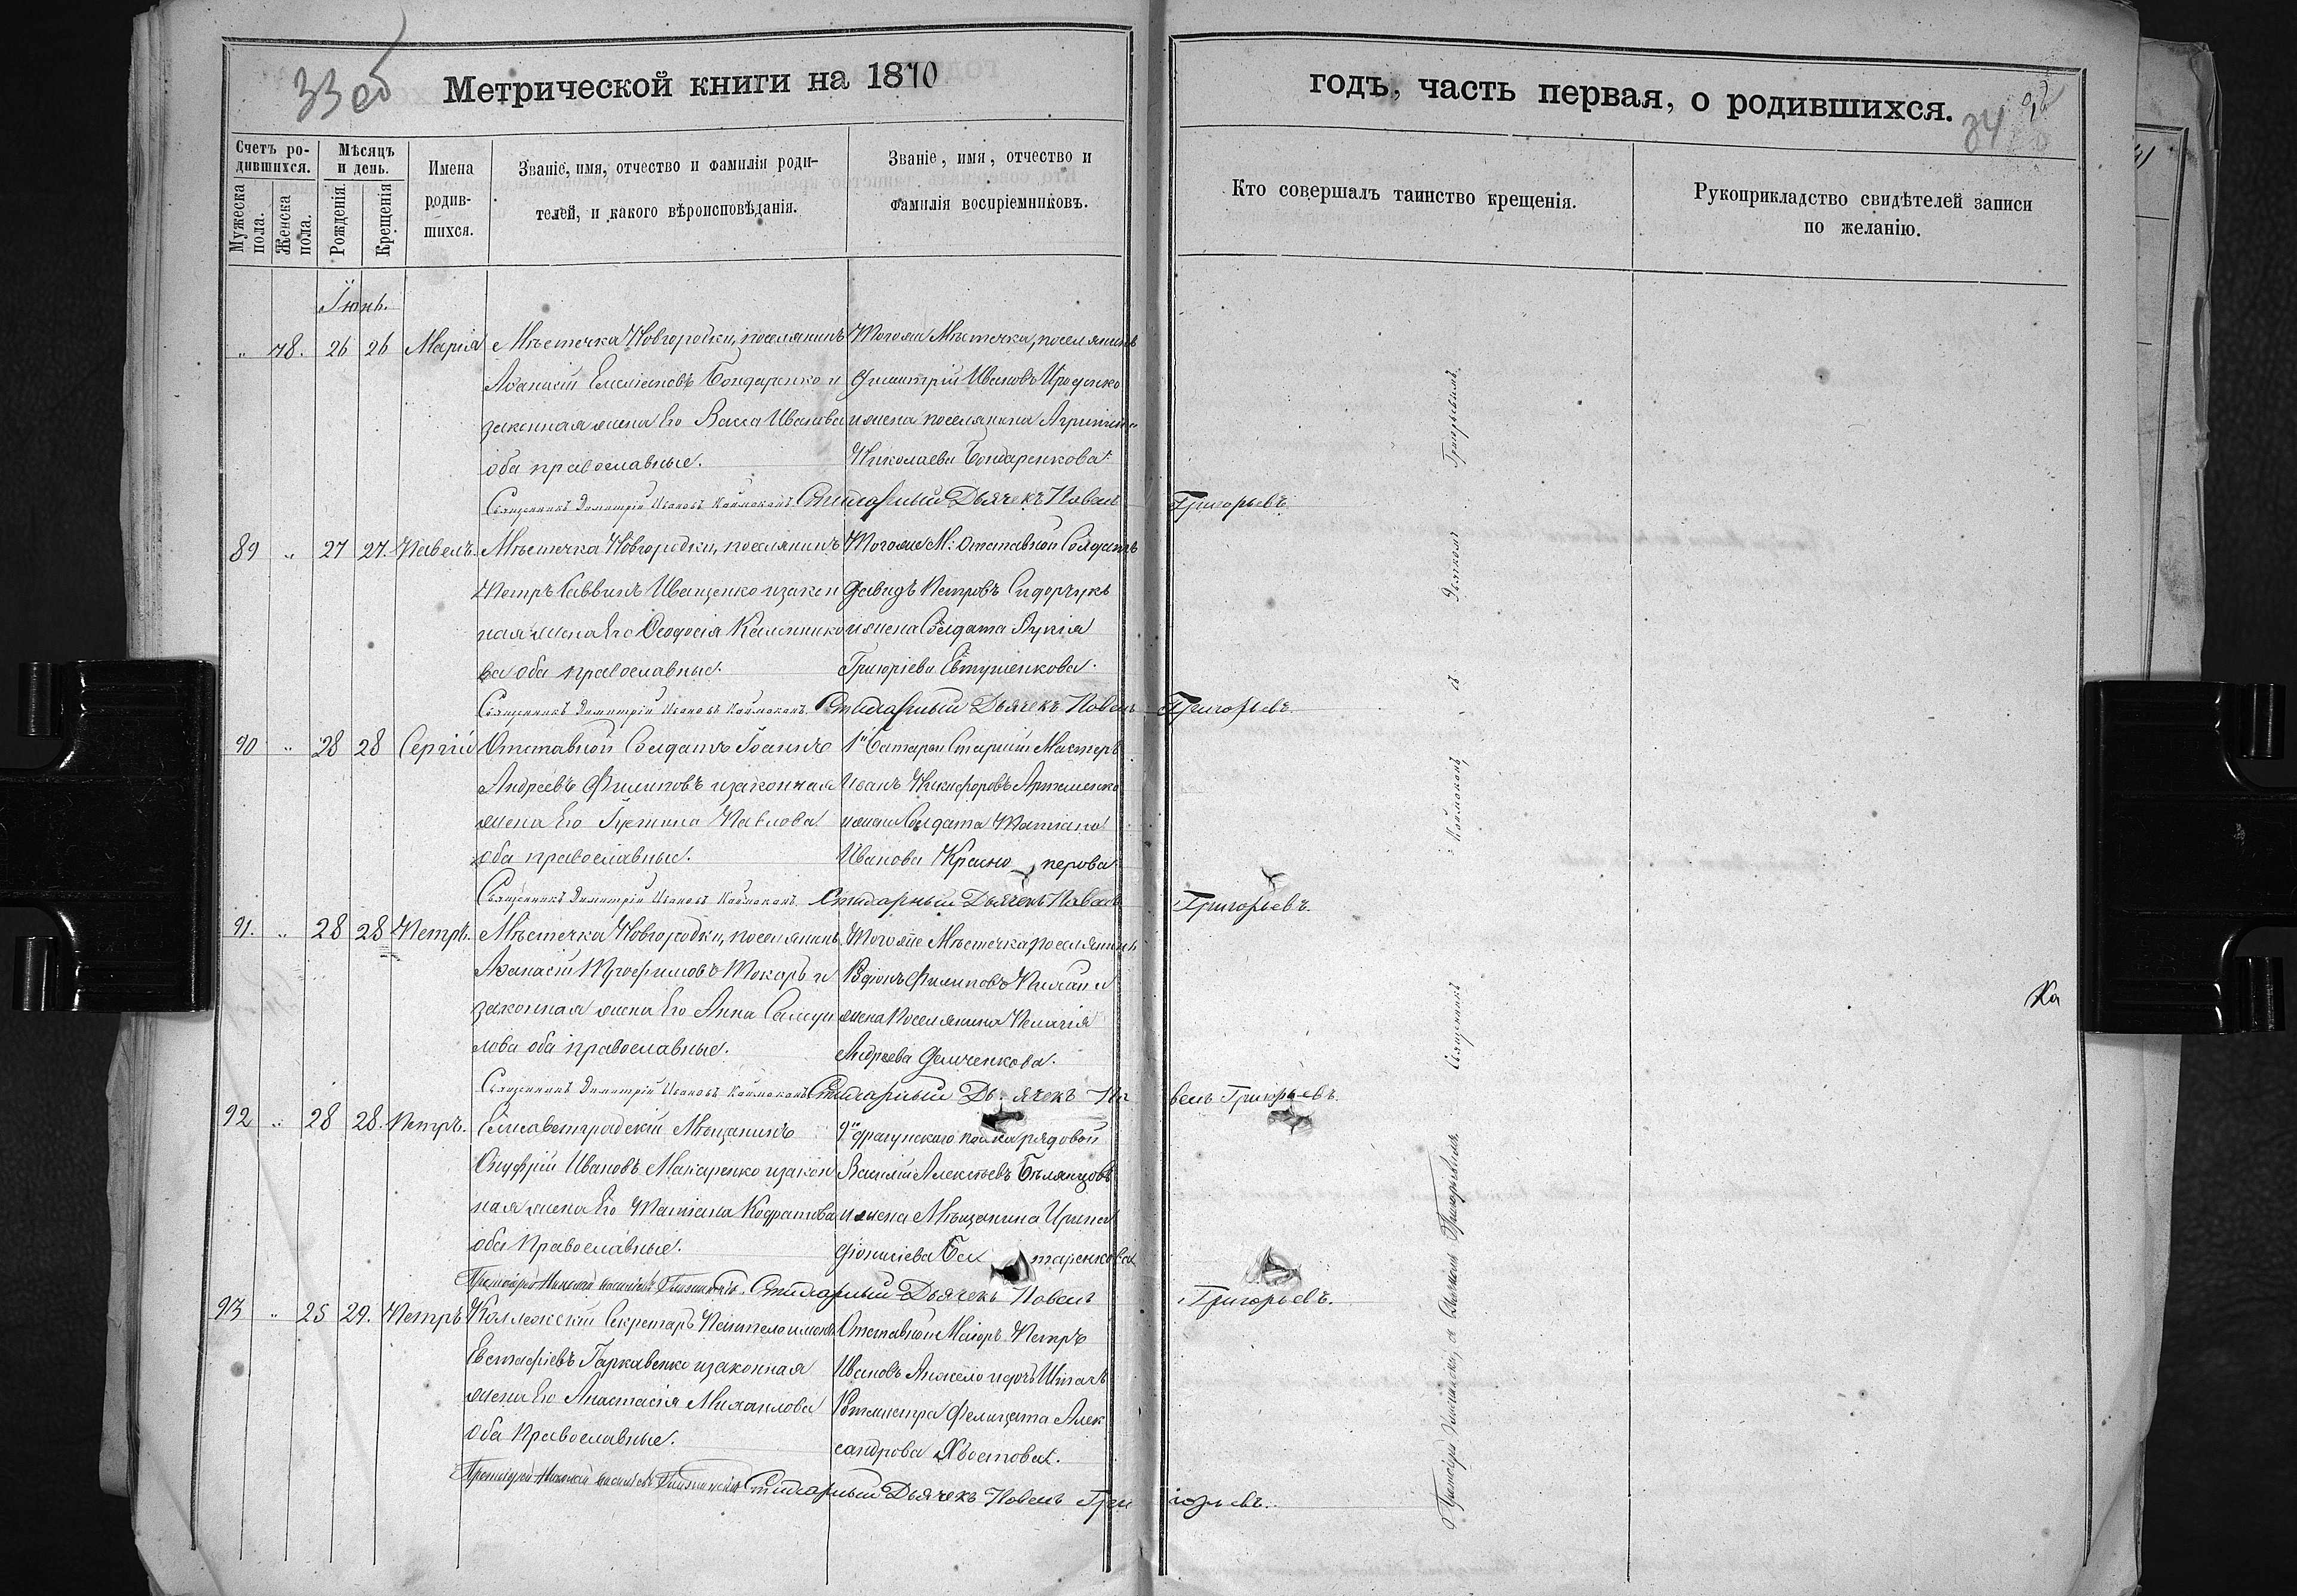 33 об
Метрической книги на 1870
годъ, часть первая, о родившихся.
34
Счетъ родившихся.
Мѣсяцъ и день.
Имена родившихся.
Званіе, имя, отчество и фамилія родителей, и какого вѣроисповѣданія.
Званіе, имя, отчество и фамилія воспріемниковъ.
Кто совершалъ таинство крещенія.
Рукоприкладство свидѣтелей записи по желанію.
Мужеска пола.
Женска пола.
Рожденія.
Крещенія
Іюнь.
„ 78. 26 26 Марія Мѣстечка Новгородки, поселянинъ Тогоже Мѣстечка, поселянинъ
Аѳанасій Емеліановъ Бондаренко и Димитрій Ивановъ
законная жена Его Васса Иванова и жена поселянина
оба православные. Николаева Бондаренкова.
Священникъ Димитрій Ивановъ Каймаканъ Стихарный Дьячекъ Павелъ Григорьевъ.
89 „ 27 27. Павелъ. Мѣстечка Новгородки, поселянинъ Тогоже М: Отставной Солдатъ
Петръ Саввинъ Иващенко и закон Давидъ Петровъ Сидорчукъ
ная жена Его Ѳеодосія Калинико и жена Солдата Лукія
ва оба православные. Григоріева Евтушенкова.
Священникъ Димитрій Ивановъ Каймаканъ. Стихарный Дьячекъ Павелъ Григорьевъ.
90 „ 28 28 Сергій Отставной Солдатъ Іоаннъ 1й Батареи Старшій Мастеръ
Андреевъ Филиповъ и законная Иванъ Никифоровъ Артеменко
жена Его Іустина Павлова и жена Солдата Татіана
оба православные. Иванова Красно перова
Священникъ Димитрій Ивановъ Каймаканъ. Стихарный Дьячекъ Павелъ Григорьевъ.
91. „ 28 28 Петръ. Мѣстечка Новгородки, поселянинъ Тогоже Мѣстечка поселянинъ
Аѳанасій Трофимовъ Токарь и Филиповъ
законная жена Его Анна Самуи жена Поселянина Пелагія
лова оба православные. Андреева Демченкова.
Священникъ Димитрій Ивановъ Каймаканъ Стихарный Дьячекъ Павелъ Григорьевъ.
92 „ 28 28. Петръ. Елисаветградскій Мѣщанинъ 9го драгунскаго полка рядовой
Онуфрій Ивановъ Макаренко и закон Василій Алексѣевъ Бѣлянцовъ
ная жена Его Татіана Кодратова и жена Мѣщанина Ирина
оба Православные. Діонисіева Ба таренкова
Протоіерей Николай Стихарный Дьячекъ Павелъ Григорьевъ.
93 „ 25 29. Петръ Коллежскій Секретарь Пантелеимонъ Отставной Маіоръ Петръ
Евстафіевъ Гаркавенко и законная Ивановъ Анжело и дочь Штабъ
жена Его Анастасія Михаилова Ротмистра Фелицата Алек
оба Православные. сандрова Хвостова.
Протоіерей Николай Стихарный Дьячекъ Павелъ Григорьевъ.
Священникъ Каймаканъ, съ Дьячкомъ Григорьевымъ
Протоіерей съ Дьячкомъ Григорьевымъ